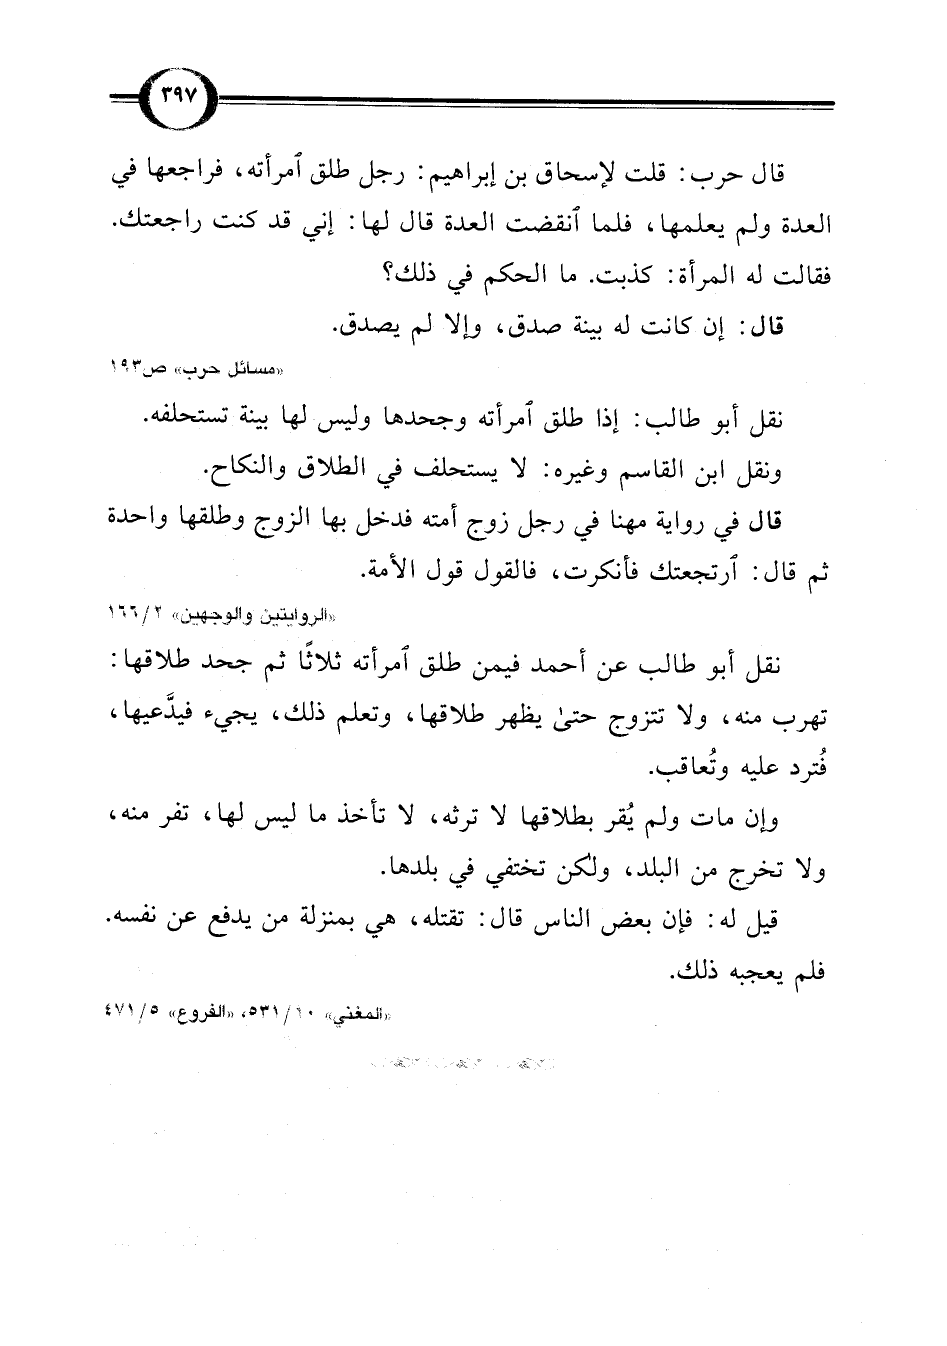 ٣٩٧
قال حرب: قلت لإسحاق بن إبراهيم: رجل طلق ٱمرأته، فراجعها في
العدة ولم يعلمها، فلما ٱنقضت العدة قال لها: إني قد كنت راجعتك.
فقالت له المرأة: كذبت. ما الحكم في ذلك؟
قال: إن كانت له بينة صدق، وإلا لم يصدق.
«مسائل حرب» ص١٩٣
نقل أبو طالب: إذا طلق ٱمرأته وجحدها وليس لها بينة تستحلفه.
ونقل ابن القاسم وغيره: لا يستحلف في الطلاق والنكاح.
قال في رواية مهنا في رجل زوج أمته فدخل بها الزوج وطلقها واحدة
ثم قال: ٱرتجعتك فأنكرت، فالقول قول الأمة.
«الروايتين والوجهين» ٢/ ١٦٦
نقل أبو طالب عن أحمد فيمن طلق ٱمرأته ثلاثًا ثم جحد طلاقها:
تهرب منه، ولا تتزوج حتىٰ يظهر طلاقها، وتعلم ذلك، يجيء فيدَّعيها،
فُترد عليه وتُعاقب.
وإن مات ولم يُقر بطلاقها لا ترثه، لا تأخذ ما ليس لها، تفر منه،
ولا تخرج من البلد، ولكن تختفي في بلدها.
قيل له: فإن بعض الناس قال: تقتله، هي بمنزلة من يدفع عن نفسه.
فلم يعجبه ذلك.
«المغني» ١٠/ ٥٣١، «الفروع» ٥/ ٤٧١